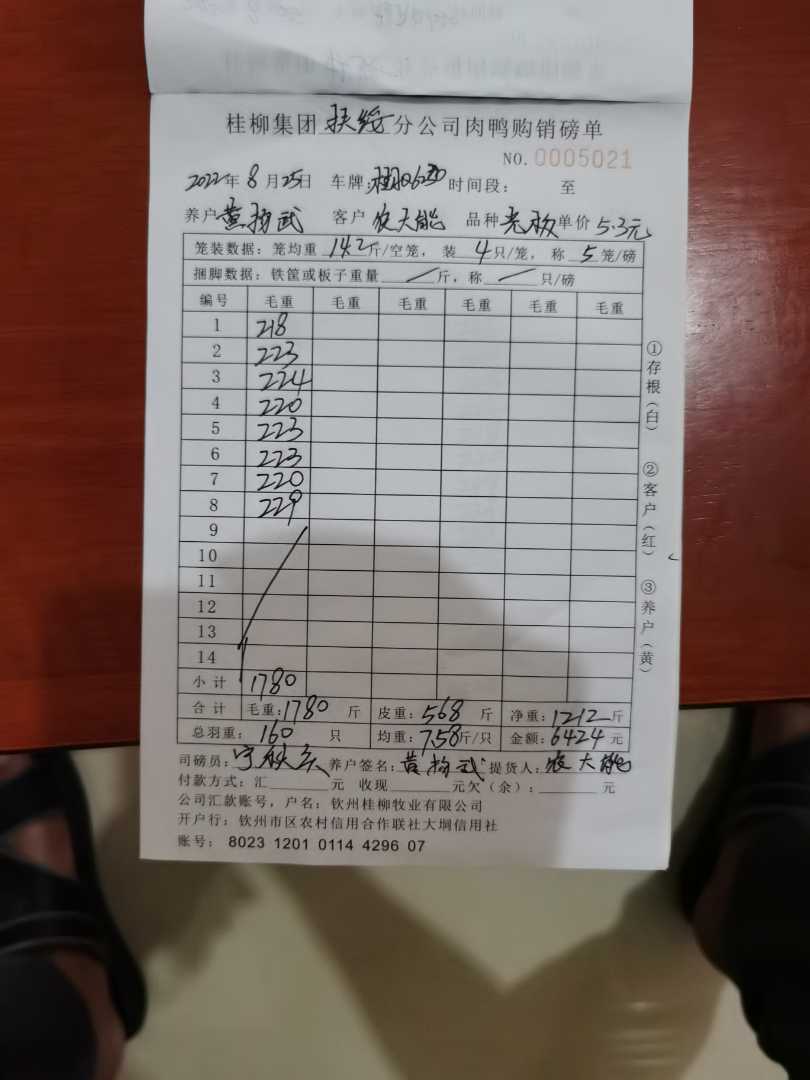 桂柳集团 扶绥 分公司肉鸭购销磅单
NO. 0005021
2022年 8 月 25日 车牌: 时间段: 至
养户 黄扬武 客户 农大能 品种 单价 5.3元
笼装数据: 笼均重 14.2 斤/空笼, 装 4 只/笼, 称 5 笼/磅
捆脚数据: 铁筐或板子重量 / 斤, 称 / 只/磅
编号 毛重 毛重 毛重 毛重 毛重 毛重
1 218
2 223
3 224
4 220
5 223
6 223
7 220
8 229
9
10
11
12
13
14
小计 1780
合计 毛重: 1780 斤 皮重: 568 斤 净重: 1212 斤
总羽重: 160 只 均重: 7.58 斤/只 金额: 6424 元
司磅员: 养户签名: 黄扬武 提货人: 农大能
付款方式: 汇 元 收现 元欠(余): 元
公司汇款账号, 户名: 钦州桂柳牧业有限公司
开户行: 钦州市区农村信用合作联社大垌信用社
账号: 8023 1201 0114 4296 07
①存根(白) ②客户(红) ③养户(黄)